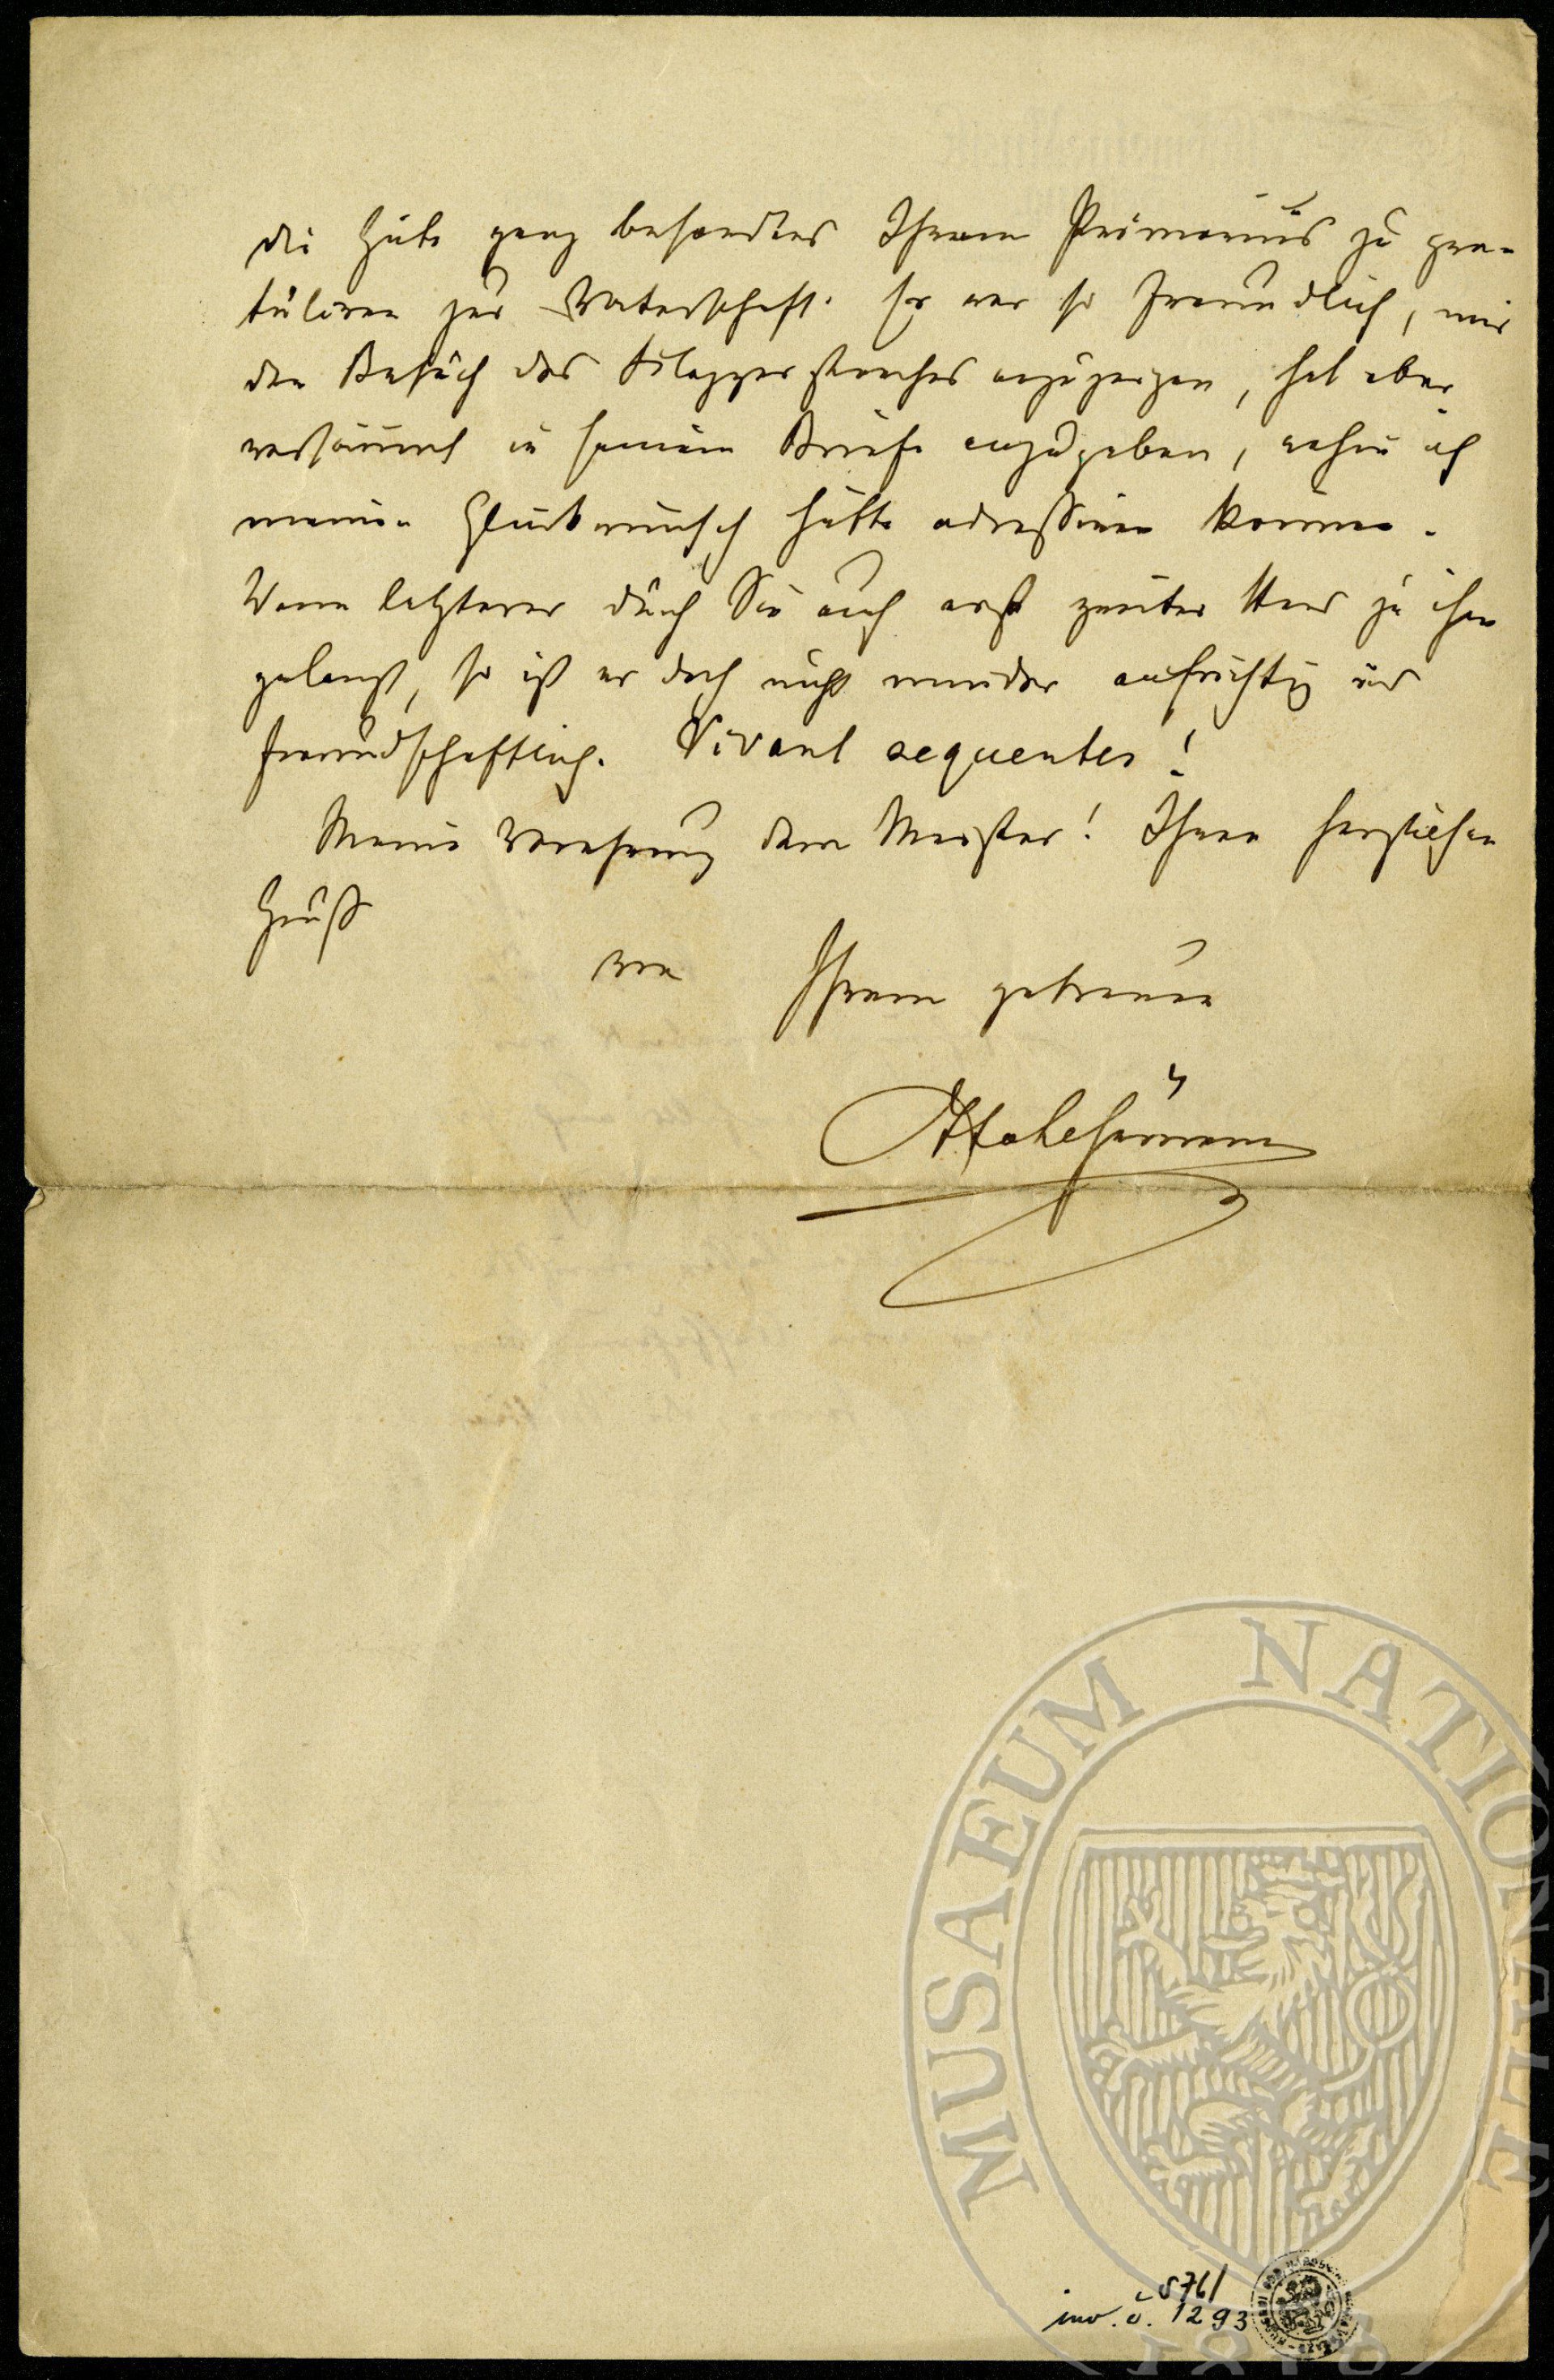 die Güte ganz besonders Ihrem Primarius zu gra-
tuliren zur Vaterschaft. Er war so freundlich, mir
den Besuch des Klapperstorches anzuzeigen, hat aber
versäumt in seinem Briefe anzugeben, wohin ich
meinen Glückwunsch hätte adressiren können.
Wenn letzterer durch Sie auch erst zweiter Hand zu ihm
gelangt, so ist er doch nicht minder aufrichtig und
freundschaftlich. Vivant sequentes!
Meine Verehrung dem Meister! Ihnen herzlichen
Gruß
von Ihrem getreuen
MUSAEUM NATIONALE
1818
S 76/
inv. č. 1293